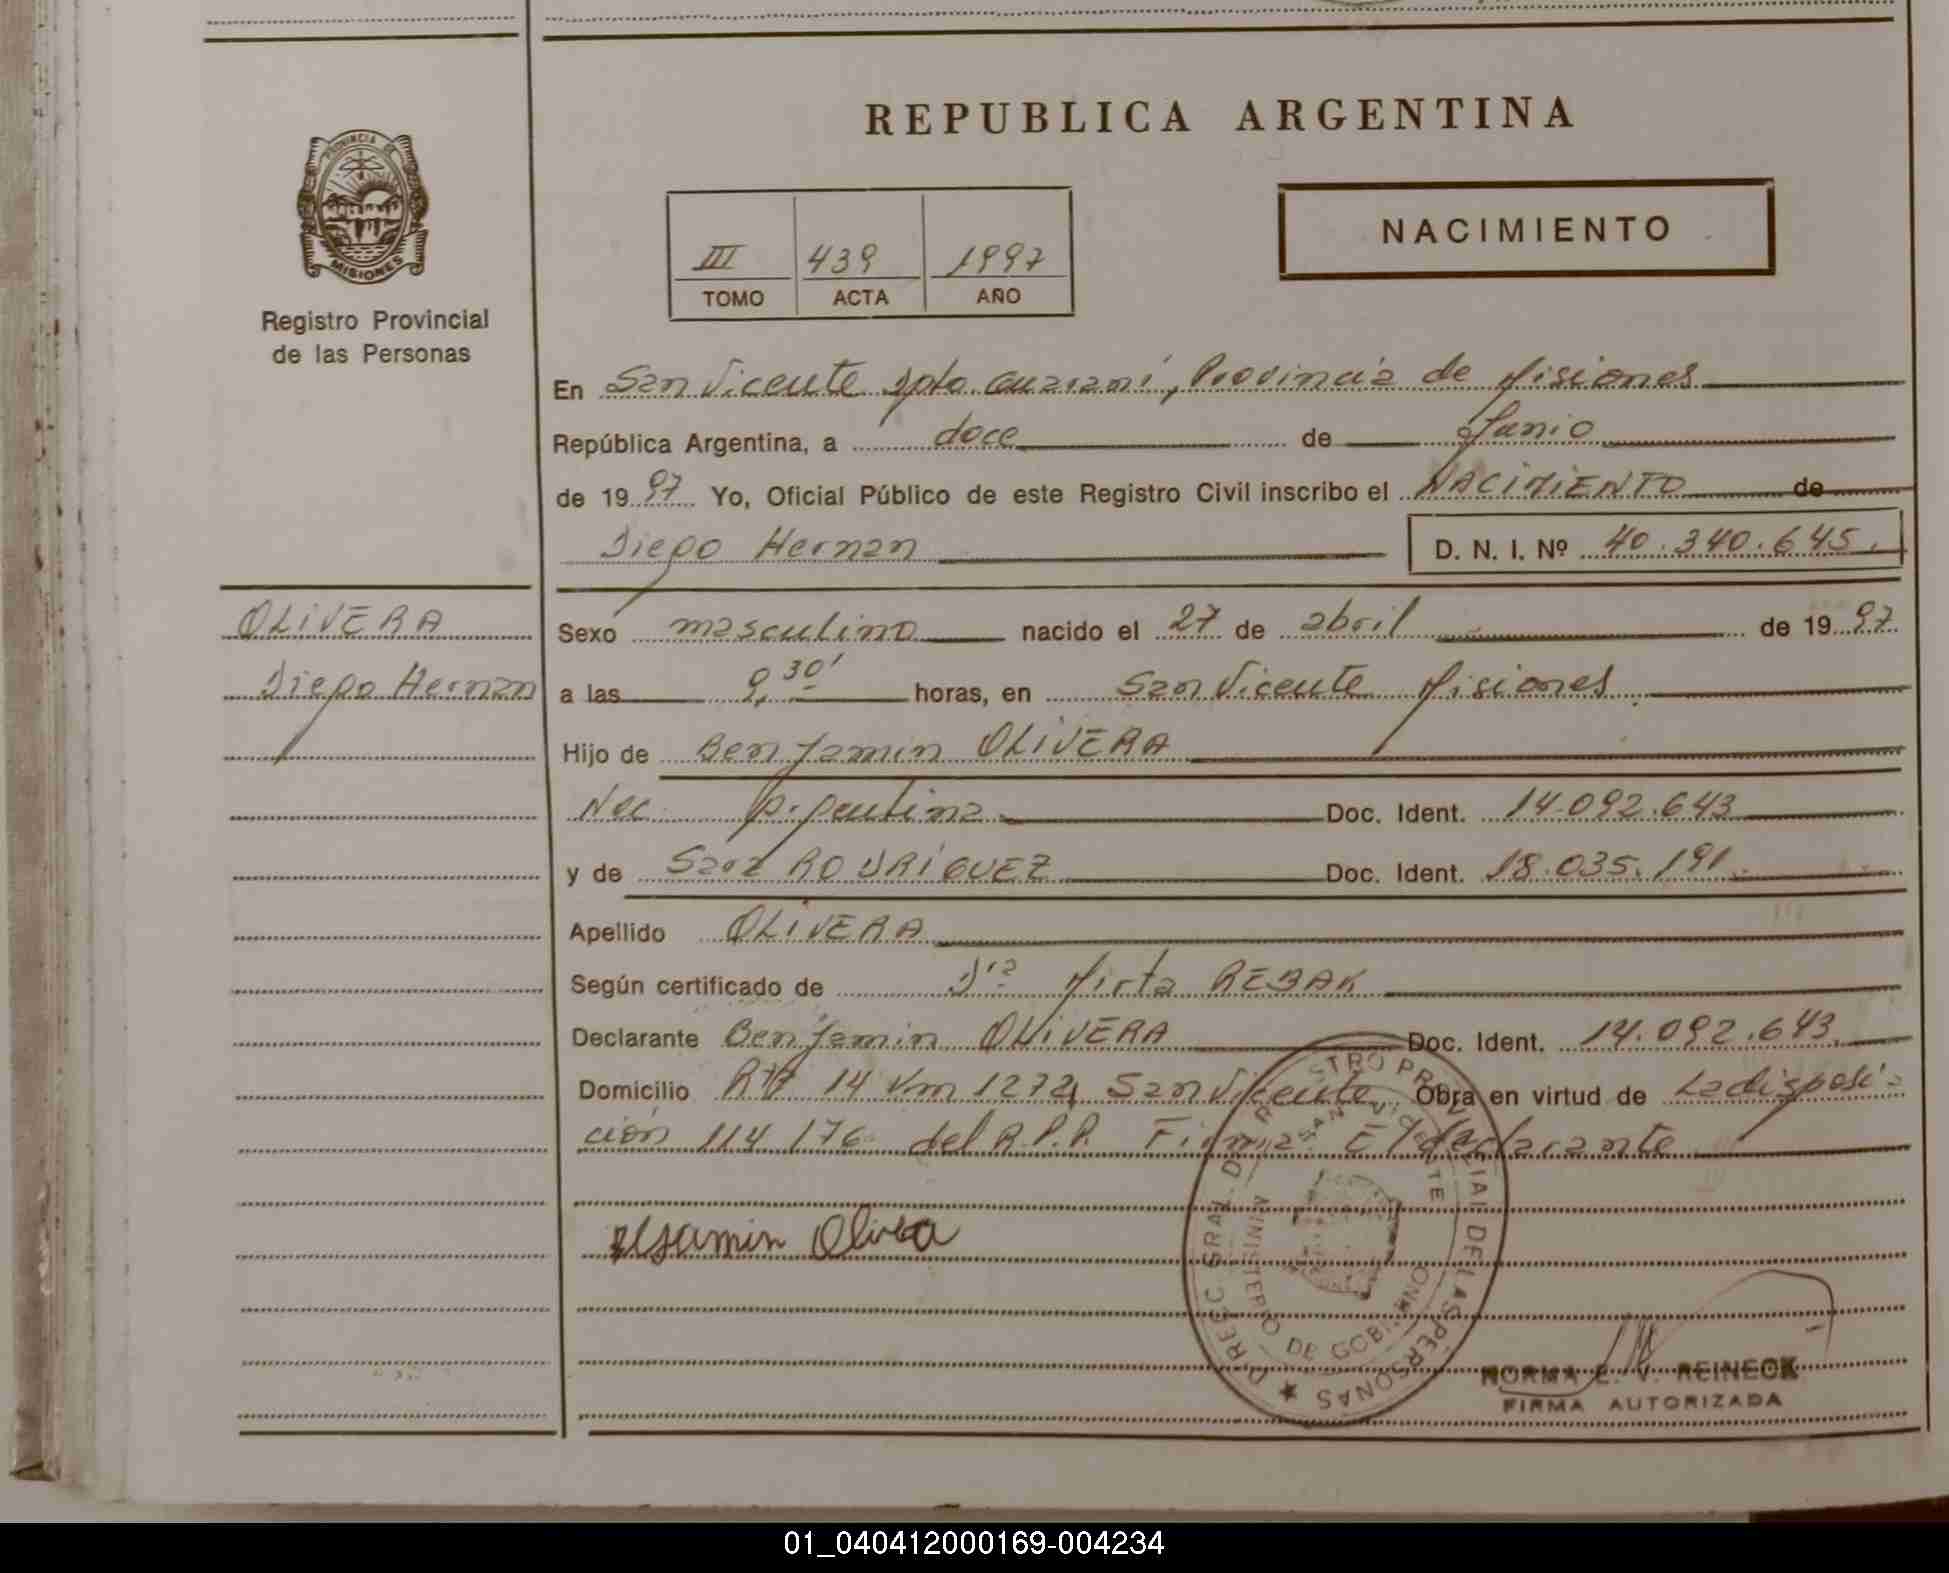 REPUBLICA ARGENTINA
PROVINCIA DE
MISIONES
Registro Provincial
de las Personas
NACIMIENTO
III 439 1997
TOMO ACTA AÑO
En San Vicente Dpto. Guaraní, Provincia de Misiones
República Argentina, a doce de Junio
de 1997 Yo, Oficial Público de este Registro Civil inscribo el NACIMIENTO de
Diego Hernan D. N. I. Nº 40.340.645.
OLIVERA
Diego Hernan
Sexo masculino nacido el 27 de abril de 1997
a las 9,30' horas, en San Vicente Misiones
Hijo de Benjamin OLIVERA
Nac. Argentina Doc. Ident. 14.092.643
y de Sara RODRIGUEZ Doc. Ident. 18.035.191.
Apellido OLIVERA
Según certificado de Dra Mirta REBAK
Declarante Benjamin OLIVERA Doc. Ident. 14.092.643.
Domicilio 14 Km 1272, San Vicente Obra en virtud de La disposi-
ción 114/76 del R.P.P. Firma El declarante
Olivera
REGISTRO PROVINCIAL DE LAS PERSONAS
SAN VICENTE
MINISTERIO DE GOBIERNO
NORMA E. V. REINECK
FIRMA AUTORIZADA
01_040412000169-004234